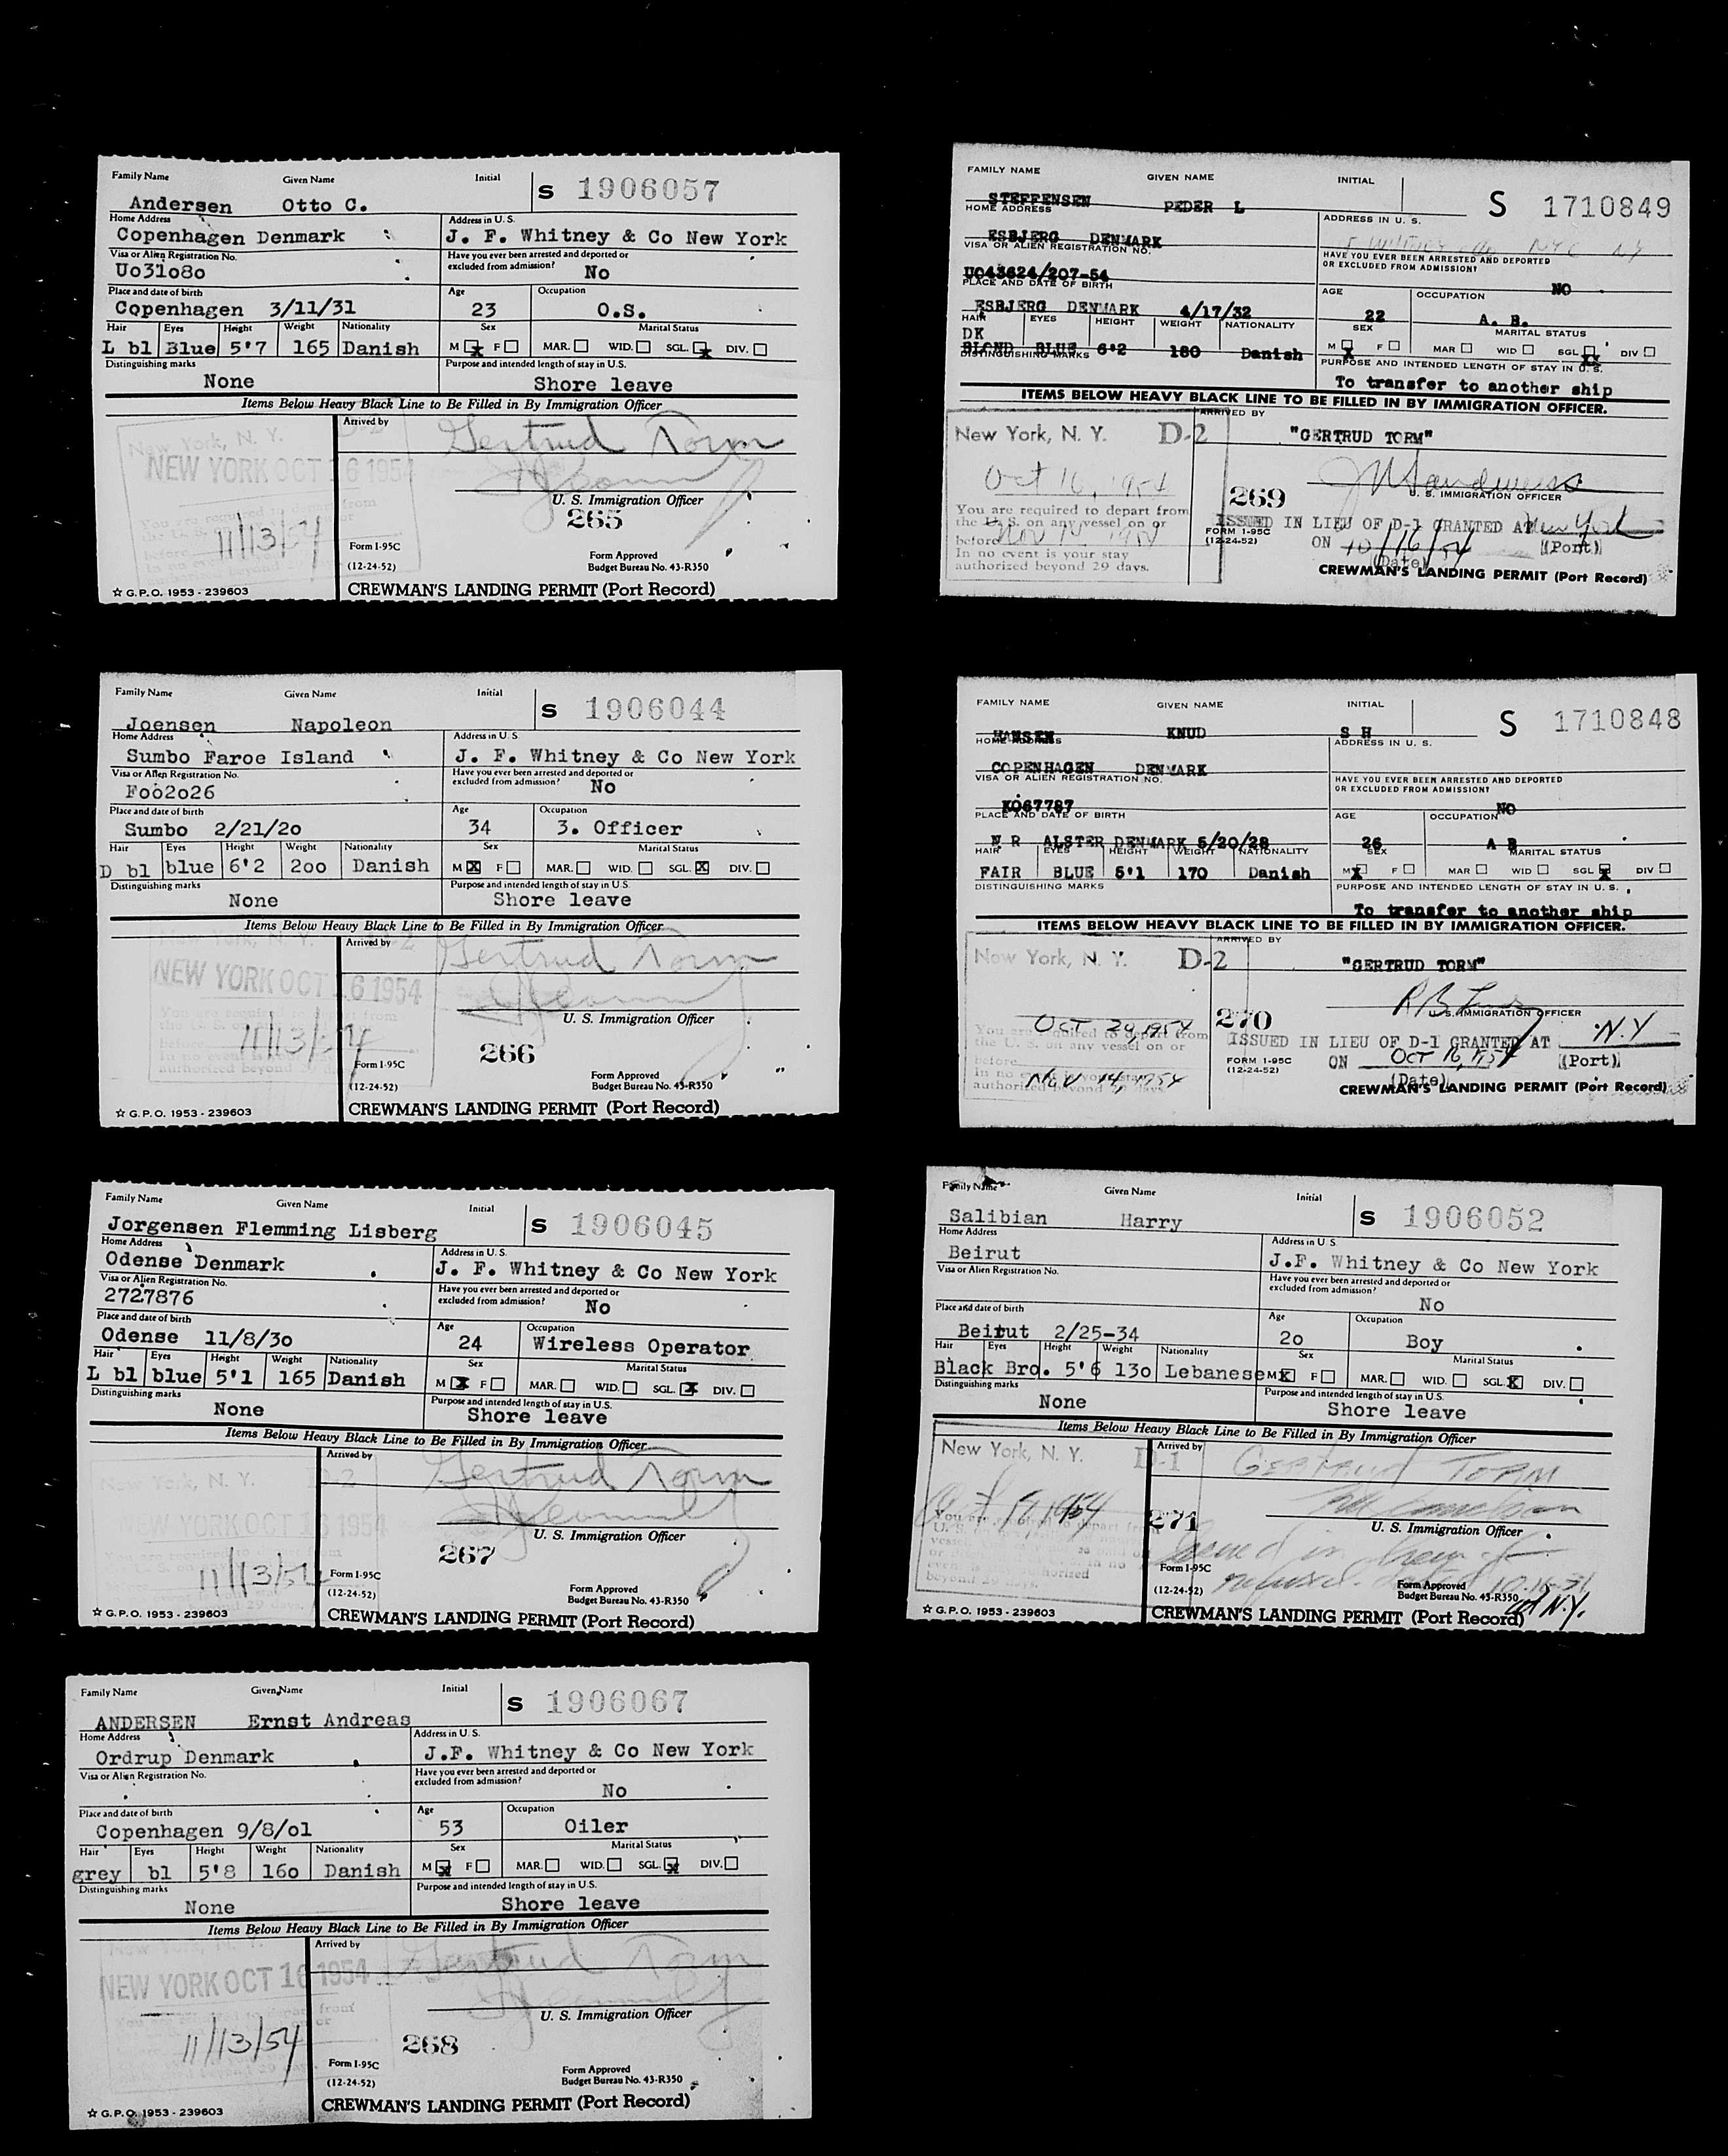 Family Name Given Name Initial
S 1906057
Andersen Otto C.
Home Address Address in U. S.
Copenhagen Denmark J. F. Whitney & Co New York
Visa or Alien Registration No. Have you ever been arrested and deported or excluded from admission?
Uo31o8o No
Place and date of birth Age Occupation
Copenhagen 3/11/31 23 O.S.
Hair Eyes Height Weight Nationality Sex Marital Status
L bl Blue 5'7 165 Danish M X F MAR. WID. SGL. X DIV.
Distinguishing marks Purpose and intended length of stay in U.S.
None Shore leave
Items Below Heavy Black Line to Be Filled in By Immigration Officer
New York, N. Y. D-2
NEW YORK OCT 16 1954
Arrived by
Gertrud Torm
U. S. Immigration Officer
265
11/13/54
Form I-95C
(12-24-52)
Form Approved
Budget Bureau No. 43-R350
☆ G.P.O. 1953 - 239603
CREWMAN'S LANDING PERMIT (Port Record)
Family Name Given Name Initial
S 1906044
Joensen Napoleon
Home Address Address in U. S.
Sumbo Faroe Island J. F. Whitney & Co New York
Visa or Alien Registration No. Have you ever been arrested and deported or excluded from admission?
Foo2o26 No
Place and date of birth Age Occupation
Sumbo 2/21/2o 34 3. Officer
Hair Eyes Height Weight Nationality Sex Marital Status
D bl blue 6'2 2oo Danish M X F MAR. WID. SGL. X DIV.
Distinguishing marks Purpose and intended length of stay in U.S.
None Shore leave
Items Below Heavy Black Line to Be Filled in By Immigration Officer
NEW YORK OCT 16 1954
Arrived by
Gertrud Torm
U. S. Immigration Officer
266
11/13/54
Form I-95C
(12-24-52)
Form Approved
Budget Bureau No. 43-R350
☆ G.P.O. 1953 - 239603
CREWMAN'S LANDING PERMIT (Port Record)
Family Name Given Name Initial
S 1906045
Jorgensen Flemming Lisberg
Home Address Address in U. S.
Odense Denmark J. F. Whitney & Co New York
Visa or Alien Registration No. Have you ever been arrested and deported or excluded from admission?
2727876 No
Place and date of birth Age Occupation
Odense 11/8/3o 24 Wireless Operator
Hair Eyes Height Weight Nationality Sex Marital Status
L bl blue 5'1 165 Danish M X F MAR. WID. SGL. X DIV.
Distinguishing marks Purpose and intended length of stay in U.S.
None Shore leave
Items Below Heavy Black Line to Be Filled in By Immigration Officer
New York, N. Y. D-2
NEW YORK OCT 16 1954
Arrived by
Gertrud Torm
U. S. Immigration Officer
267
11/13/54
Form I-95C
(12-24-52)
Form Approved
Budget Bureau No. 43-R350
☆ G.P.O. 1953 - 239603
CREWMAN'S LANDING PERMIT (Port Record)
Family Name Given Name Initial
S 1906067
ANDERSEN Ernst Andreas
Home Address Address in U. S.
Ordrup Denmark J.F. Whitney & Co New York
Visa or Alien Registration No. Have you ever been arrested and deported or excluded from admission?
No
Place and date of birth Age Occupation
Copenhagen 9/8/o1 53 Oiler
Hair Eyes Height Weight Nationality Sex Marital Status
grey bl 5'8 16o Danish M X F MAR. WID. SGL. X DIV.
Distinguishing marks Purpose and intended length of stay in U.S.
None Shore leave
Items Below Heavy Black Line to Be Filled in By Immigration Officer
NEW YORK OCT 16 1954
Arrived by
Gertrud Torm
U. S. Immigration Officer
268
11/13/54
Form I-95C
(12-24-52)
Form Approved
Budget Bureau No. 43-R350
☆ G.P.O. 1953 - 239603
CREWMAN'S LANDING PERMIT (Port Record)
FAMILY NAME GIVEN NAME INITIAL
S 1710849
STEFFENSEN PEDER L
HOME ADDRESS ADDRESS IN U. S.
ESBJERG DENMARK
VISA OR ALIEN REGISTRATION NO. HAVE YOU EVER BEEN ARRESTED AND DEPORTED OR EXCLUDED FROM ADMISSION?
UO43624/207-54 NO
PLACE AND DATE OF BIRTH AGE OCCUPATION
ESBJERG DENMARK 4/17/32 22 A. B.
HAIR EYES HEIGHT WEIGHT NATIONALITY SEX MARITAL STATUS
DK
BLOND BLUE 6'2 180 Danish M X F MAR WID SGL XX DIV
DISTINGUISHING MARKS PURPOSE AND INTENDED LENGTH OF STAY IN U. S.
To transfer to another ship
ITEMS BELOW HEAVY BLACK LINE TO BE FILLED IN BY IMMIGRATION OFFICER.
New York, N. Y. D-2
ARRIVED BY
"GERTRUD TORM"
Oct 16, 1954
U. S. IMMIGRATION OFFICER
269
You are required to depart from
the U. S. on any vessel on or
before Nov 14 1954
In no event is your stay
authorized beyond 29 days.
ISSUED IN LIEU OF D-1 GRANTED AT New York
FORM I-95C
(12-24-52)
ON 10/16/54 (Port)
(Date)
CREWMAN'S LANDING PERMIT (Port Record)
FAMILY NAME GIVEN NAME INITIAL
S 1710848
HANSEN KNUD S H
HOME ADDRESS ADDRESS IN U. S.
COPENHAGEN DENMARK
VISA OR ALIEN REGISTRATION NO. HAVE YOU EVER BEEN ARRESTED AND DEPORTED OR EXCLUDED FROM ADMISSION?
KO67787 NO
PLACE AND DATE OF BIRTH AGE OCCUPATION
N R ALSTER DENMARK 5/20/28 26 A B
HAIR EYES HEIGHT WEIGHT NATIONALITY SEX MARITAL STATUS
FAIR BLUE 5'1 170 Danish M X F MAR WID SGL X DIV
DISTINGUISHING MARKS PURPOSE AND INTENDED LENGTH OF STAY IN U. S.
To transfer to another ship
ITEMS BELOW HEAVY BLACK LINE TO BE FILLED IN BY IMMIGRATION OFFICER.
New York, N. Y. D-2
ARRIVED BY
"GERTRUD TORM"
U. S. IMMIGRATION OFFICER
270
OCT 29, 1954
You are required to depart from
the U. S. on any vessel on or
before
In no event is your stay
authorized beyond 29 days.
NOV 14, 1954
ISSUED IN LIEU OF D-1 GRANTED AT N.Y
FORM I-95C
(12-24-52)
ON OCT 16, 1954 (Port)
(Date)
CREWMAN'S LANDING PERMIT (Port Record)
Family Name Given Name Initial
S 1906052
Salibian Harry
Home Address Address in U. S.
Beirut J.F. Whitney & Co New York
Visa or Alien Registration No. Have you ever been arrested and deported or excluded from admission?
No
Place and date of birth Age Occupation
Beirut 2/25-34 2o Boy
Hair Eyes Height Weight Nationality Sex Marital Status
Black Bro. 5'6 13o Lebanese M X F MAR. WID. SGL. X DIV.
Distinguishing marks Purpose and intended length of stay in U.S.
None Shore leave
Items Below Heavy Black Line to Be Filled in By Immigration Officer
New York, N. Y. D-1
Arrived by
GERTRUD TORM
271
U. S. Immigration Officer
Form I-95C
(12-24-52)
Form Approved
Budget Bureau No. 43-R350
at N.Y.
☆ G.P.O. 1953 - 239603
CREWMAN'S LANDING PERMIT (Port Record)